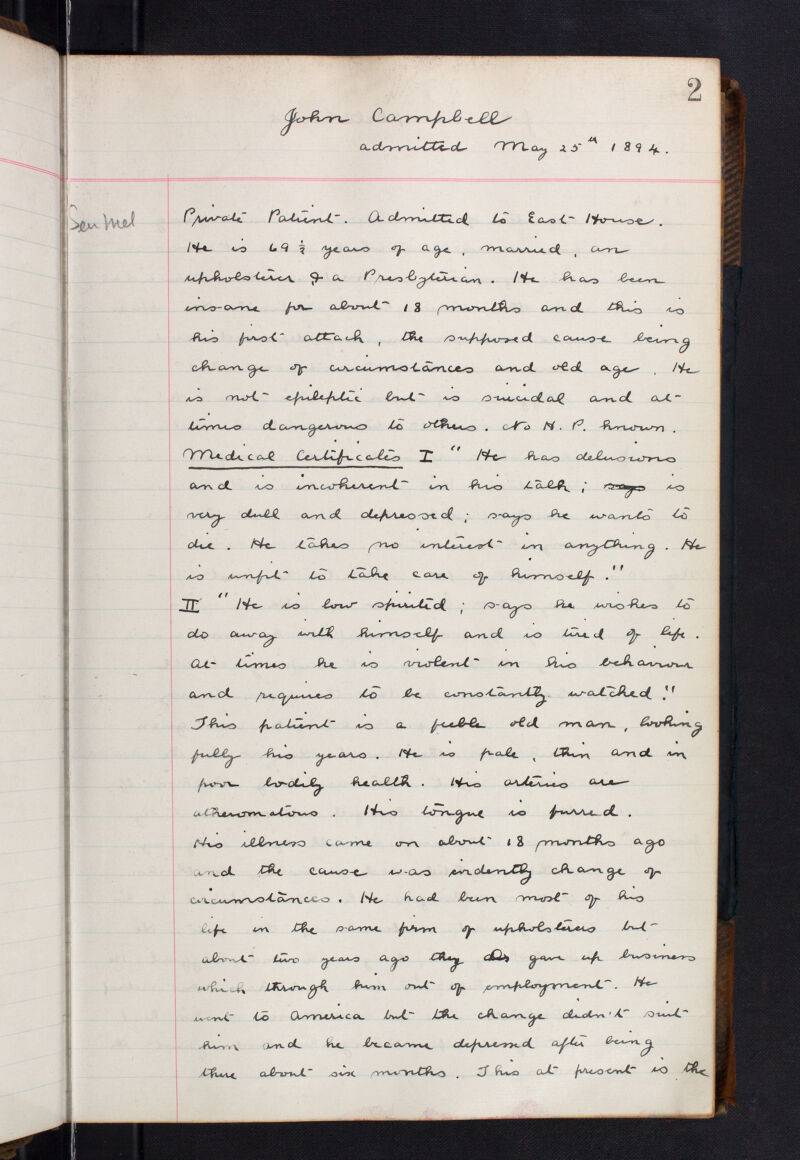 2
John Campbell
admitted May 25th 1894.
Sen Mel
Private Patient. Admitted to East House.
He is 69½ years of age, married, an
upholsterer & a Presbyterian. He has been
insane for about 18 months and this is
his first attack, the supposed cause being
change of circumstances and old age. He
is not epileptic but is suicidal and at
times dangerous to others. No H. P. known.
Medical Certificates I "He has delusions
and is incoherent in his talk; says is
very dull and depressed; says he wants to
die. He takes no interest in anything. He
is unfit to take care of himself."
II "He is low spirited; says he wishes to
do away with himself and is tired of life.
At times he is violent in his behaviour
and requires to be constantly watched."
This patient is a feeble old man, looking
fully his years. He is pale, thin and in
poor bodily health. His arteries are
atheromatous. His tongue is furred.
His illness came on about 18 months ago
and the cause was evidently change of
circumstances. He had been most of his
life in the same firm of upholsterers but
about two years ago they gave up business
which through him out of employment. He
went to America but the change didn't suit
him and he became depressed after being
there about six months. This at present is the